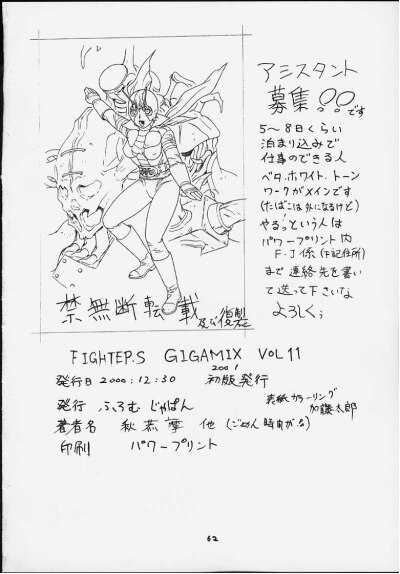 アシスタント
募集!!です
5〜8日くらい
泊まり込みで
仕事のできる人
ベタ、ホワイト、トーン
ワークがメインです
(たばこは外になるけど)
やる!という人は
パワープリント内
F.J係(下記住所)
まで連絡先を書い
て送って下さいな
よろしくぅ
禁無断転載
及び復製
FIGHTER.S GIGAMIX VOL 11
発行日 2000.12.30 2001 初版発行
発行 ふろむじゃぱん
表紙カラーリング
加藤太郎
著者名 秋 他 (ごめん時間がる)
印刷 パワープリント
62